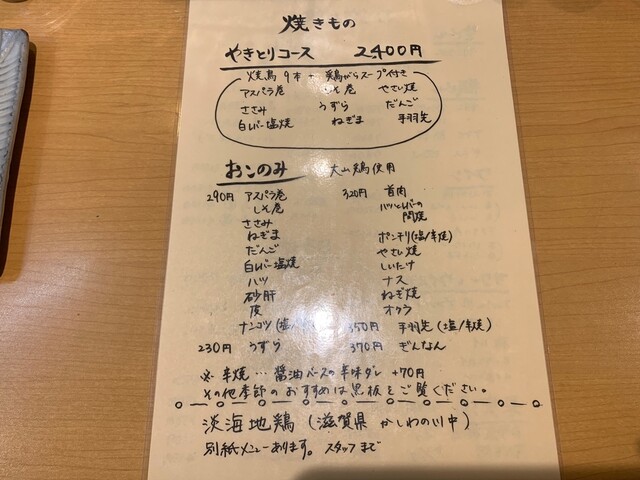 焼きもの
やきとりコース 2,400円
焼鳥 9本 + 鶏がらスープ付き
アスパラ巻 しそ巻 やさい焼
ささみ うずら だんご
白レバー塩焼 ねぎま 手羽先
おこのみ 大山鶏使用
290円 アスパラ巻 320円 首肉
しそ巻 ハツとレバーの
ささみ 間焼
ねぎま ボンチリ(塩/辛焼)
だんご やさい焼
白レバー塩焼 しいたけ
ハツ ナス
砂肝 ねぎ焼
皮 オクラ
ナンコツ(塩/ 350円 手羽先(塩/辛焼)
230円 うずら 370円 ぎんなん
※ 辛焼…醤油ベースの辛味ダレ +70円
その他季節のおすすめは黒板をご覧ください。
淡海地鶏(滋賀県 かしわの川中)
別紙メニューあります。スタッフまで